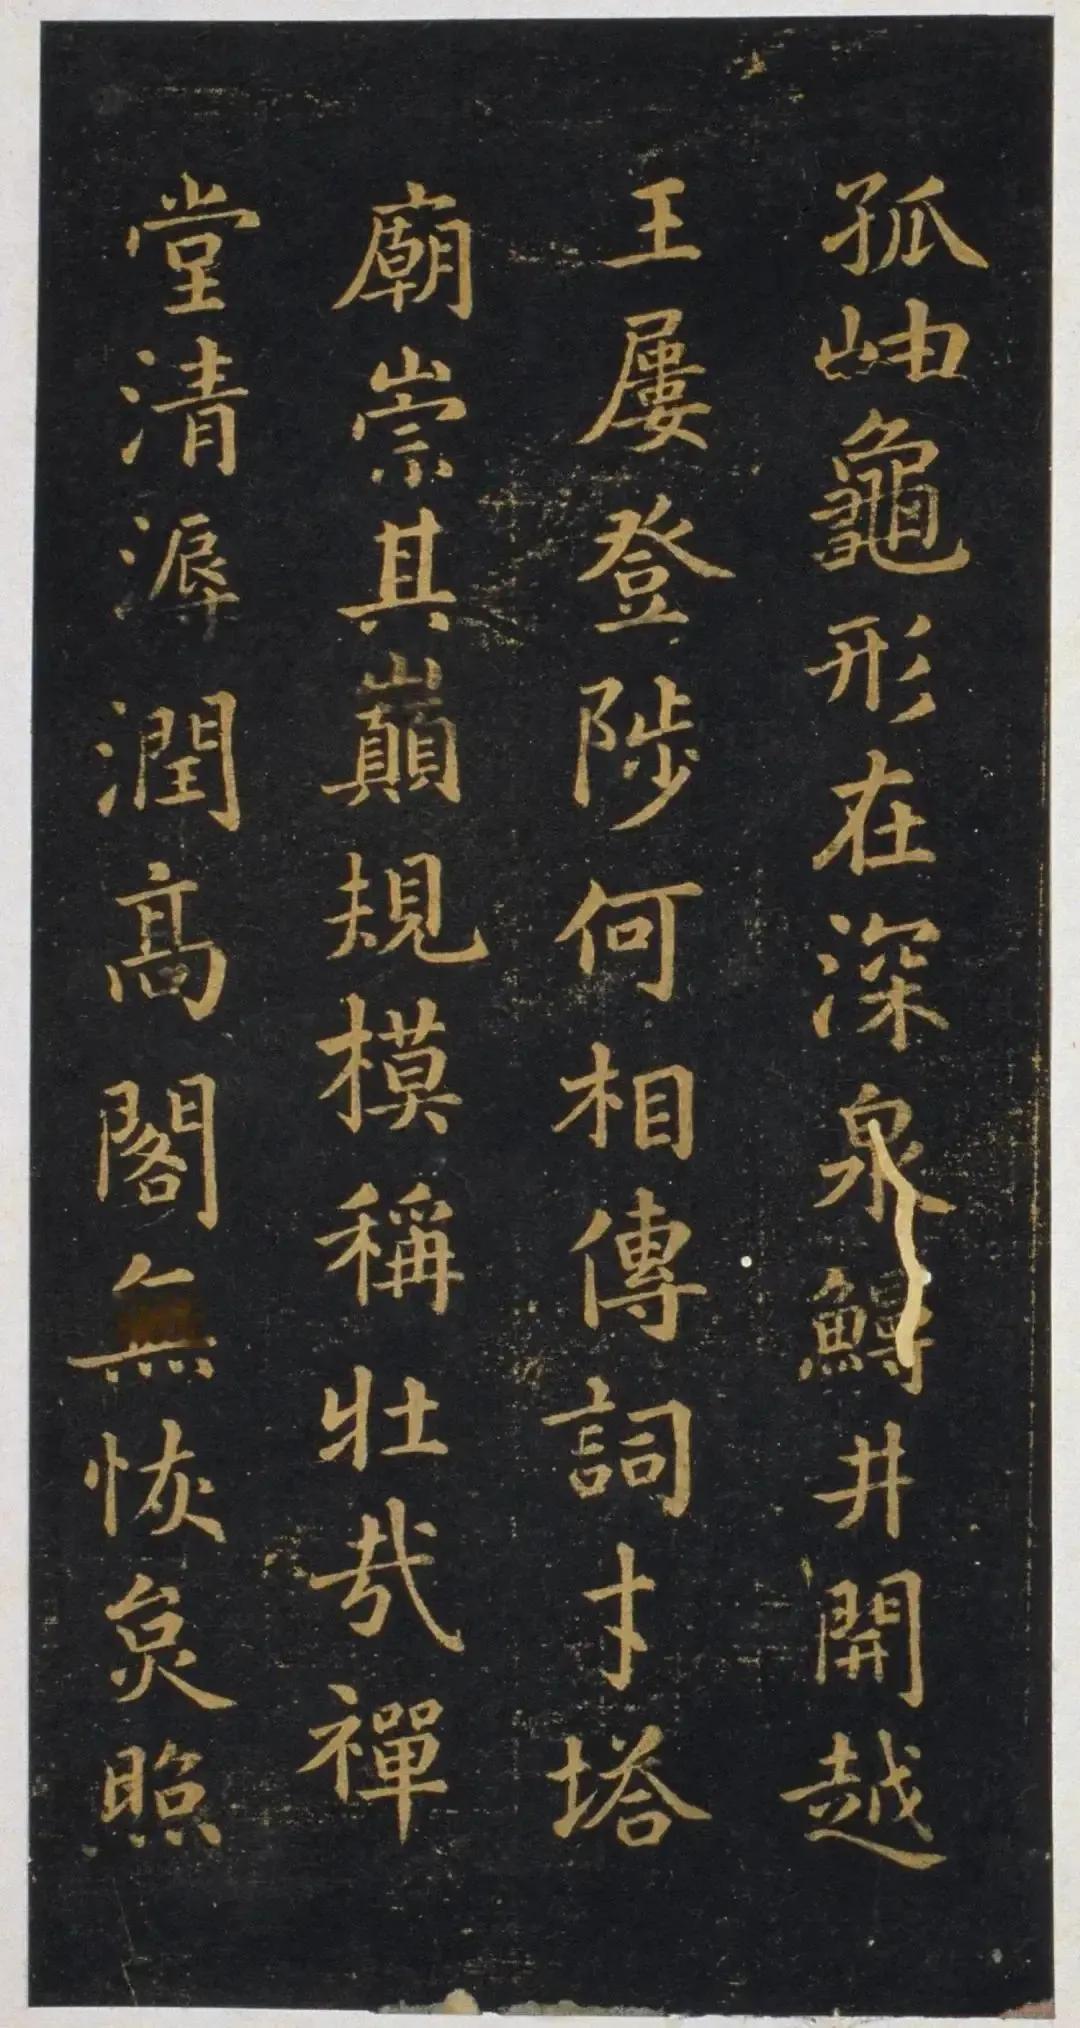 孤岫龜形在深泉鱘井開越
王屢登陟何相傳詞才塔
廟崇其巔規模稱壯哉禪
堂清潯潤高閣無恢炱照